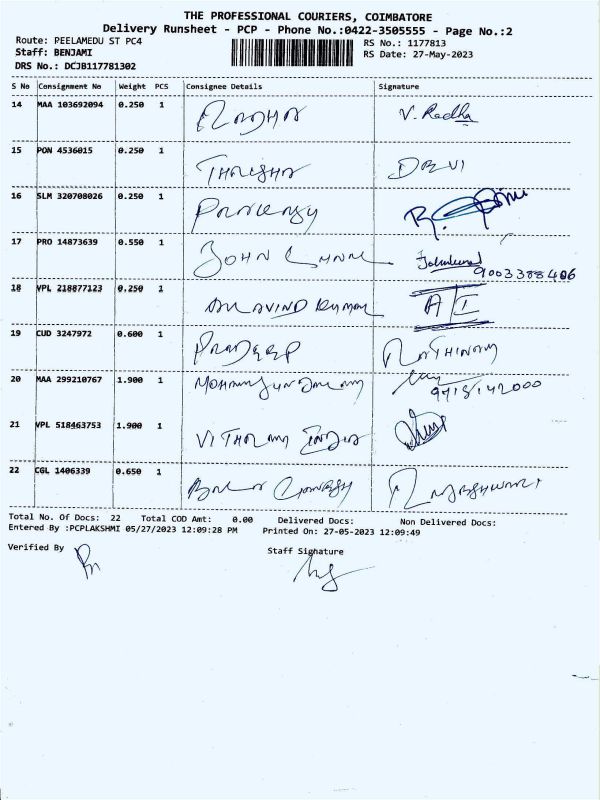 THE PROFESSIONAL COURIERS, COIMBATORE
Delivery Runsheet - PCP - Phone No.:0422-3505555 - Page No.:2
Route: PEELAMEDU ST PC4 RS No.: 1177813
Staff: BENJAMI RS Date: 27-May-2023
DRS No.: DCJB117781302
S No Consignment No Weight PCS Consignee Details Signature
14 MAA 103692094 0.250 1 RADHA V. Radha
15 PON 4536015 0.250 1 THRISHA DEVI
16 SLM 320708026 0.250 1
17 PRO 14873639 0.550 1 JOHN
9003388406
18 VPL 218877123 0.250 1 ARAVIND KUMAR
19 CUD 3247972 0.600 1 PRADEEP RATHINAM
20 MAA 299210767 1.900 1
21 VPL 518463753 1.900 1 INDIA
22 CGL 1406339 0.650 1 BALA
Total No. Of Docs: 22 Total COD Amt: 0.00 Delivered Docs: Non Delivered Docs:
Entered By :PCPLAKSHMI 05/27/2023 12:09:28 PM Printed On: 27-05-2023 12:09:49
Verified By Staff Signature